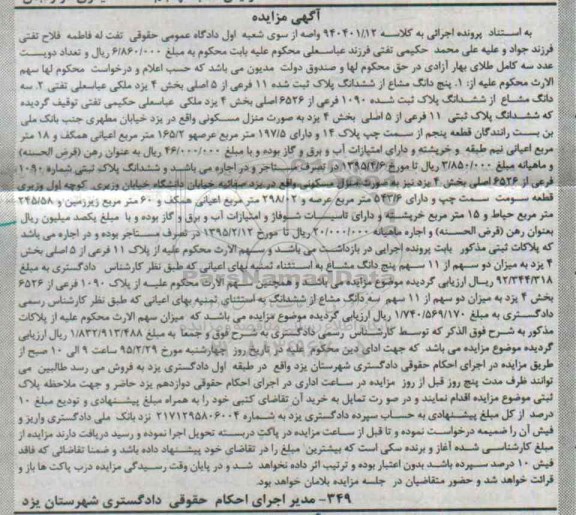 آگهی مزایده
به استناد پرونده اجرائی به کلاسه ۹۴۰۴۰۱/۱۲ واصه از سوی شعبه اول دادگاه عمومی حقوقی تفت له فاطمه فلاح تفتی
فرزند جواد و علیه علی محمد حکیمی تفتی فرزند عباسعلی محکوم علیه بابت محکوم به مبلغ ۶/۸۶۰/۰۰۰ ریال و تعداد دویست
عدد سه کامل طلای بهار آزادی در حق محکوم لها و صندوق دولت مدیون می باشد که حسب اعلام و درخواست محکوم لها سهم
الارث محکوم علیه از: ۱. پنج دانگ مشاع از ششدانگ پلاک ثبت شده ۱۱ فرعی از ۵ اصلی بخش ۴ یزد ملکی عباسعلی تفتی ۲. سه
دانگ مشاع از ششدانگ پلاک ثبت شده ۱۰۹۰ فرعی از ۶۵۲۶ اصلی بخش ۴ یزد ملکی عباسعلی حکیمی تفتی توقیف گردیده
که ششدانگ پلاک ثبتی ۱۱ فرعی از ۵ اصلی بخش ۴ یزد به صورت منزل مسکونی واقع در یزد خیابان مطهری جنب بانک ملی
بن بست رانندگان قطعه پنجم از سمت چپ پلاک ۱۴ و دارای ۱۹۷/۵ متر مربع عرصهو ۱۶۵/۲ متر مربع اعیانی همکف و ۱۸ متر
مربع اعیانی نیم طبقه و خرپشته و دارای امتیازات آب و برق و گاز بوده و با مبلغ ۴۶/۰۰۰/۰۰۰ ریال به عنوان رهن (قرض الحسنه)
و ماهیانه مبلغ ۳/۸۵۰/۰۰۰ ریال تا مورخ ۱۳۹۵/۲/۶ در تصرف مستاجر و در اجاره می باشد و ششدانگ پلاک ثبتی شماره ۱۰۹۰
فرعی از ۶۵۲۶ اصلی بخش ۴ یزد نیز به صورت منزل مسکونی واقع در یزد صفائیه خیابان دانشگاه خیابان وزیری کوچه اول وزیری
قطعه سومت سمت چپ و دارای ۵۴۲/۶ متر مربع عرصه و ۲۹۸/۰۲ متر مربع اعیانی همکف و ۶۰ متر مربع زیرزمین و ۲۴۵/۵۸
متر مربع حیاط و ۱۵ متر مربع خرپشته و دارای تاسیسات شوفاژ و امتیازات آب و برق و گاز بوده و با مبلغ یکصد میلیون ریال
بعنوان رهن (قرض الحسنه) و اجاره ماهیانه ۲۰/۰۰۰/۰۰۰ ریال تا مورخ ۱۳۹۵/۲/۱۲ در تصرف مستاجر بوده و در اجاره می باشد
که پلاکات ثبتی مذکور بابت پرونده اجرایی در بازداشت می باشد و سهم الارث محکوم علیه از پلاک ۱۱ فرعی از ۵ اصلی بخش
۴ یزد به میزان دو سهم از ۱۱ سهم پنج دانگ مشاع به استثناء ثمنیه بهای اعیانی که طبق نظر کارشناس دادگستری به مبلغ
۹۲/۳۴۴/۳۱۸ ریال ارزیابی گردیده موضوع مزایده می باشد و همچنین سهم الارث محکوم علیه از پلاک ۱۰۹۰ فرعی از ۶۵۲۶
بخش ۴ یزد به میزان دو سهم از ۱۱ سهم سه دانگ مشاع از ششدانگ به استثنای ثمنیه بهای اعیانی که طبق نظر کارشناس رسمی
دادگستری به مبلغ ۱/۷۴۰/۵۶۹/۱۷۰ ریال ارزیابی گردیده موضوع مزایده می باشد که میزان سهم الارث محکوم علیه از پلاکات
مذکور به شرح فوق الذکر که توسط کارشناس رسمی دادگستری به شرح فوق و جمعا به مبلغ ۱/۸۳۲/۹۱۳/۴۸۸ ریال ارزیابی
گردیده موضوع مزایده می باشد که جهت ادای دین محکوم علیه در تاریخ روز چهارشنبه مورخ ۹۵/۲/۲۹ ساعت ۹ الی ۱۰ صبح از
طریق مزایده در اجرای احکام حقوقی دادگستری شهرستان یزد واقع در طبقه اول دادگستری یزد به فروش می رسد طالبین می
توانند ظرف مدت پنج روز قبل از روز مزایده در ساعت اداری در اجرای احکام حقوقی دوازدهم یزد حاضر و جهت ملاحظه پلاک
ثبتی موضوع مزایده اقدام نمایند و در صورت تمایل به خرید آن تقاضای کتبی خود را به همراه مبلغ پیشنهادی و تودیع مبلغ ۱۰
درصد از کل مبلغ پیشنهادی به حساب سپرده دادگستری یزد به شماره ۲۱۷۱۲۹۵۸۰۶۰۰۴ نزد بانک ملی دادگستری واریز و
فیش آن را ضمیمه درخواست نموده و تا قبل از ساعت مزایده در پاکت دربسته تحویل اجرا نموده و رسید دریافت دارند مزایده از
مبلغ کارشناسی شده آغاز و برنده سکی است که بیشترین مبلغ را در تقاضای خود پیشنهاد داده باشد و ضمنا تقاضائی که فاقد
فیش ۱۰ درصد سپرده باشد بدون اعتبار بوده و ترتیب اثر داده نخواهد شد و در پایان وقت رسیدگی مزایده درب پاکت ها باز و
قرائت خواهد شد و حضور متقاضیان در جلسه مزایده بلامان خواهد بود.
۳۴۹- مدیر اجرای احکام حقوقی دادگستری شهرستان یزد